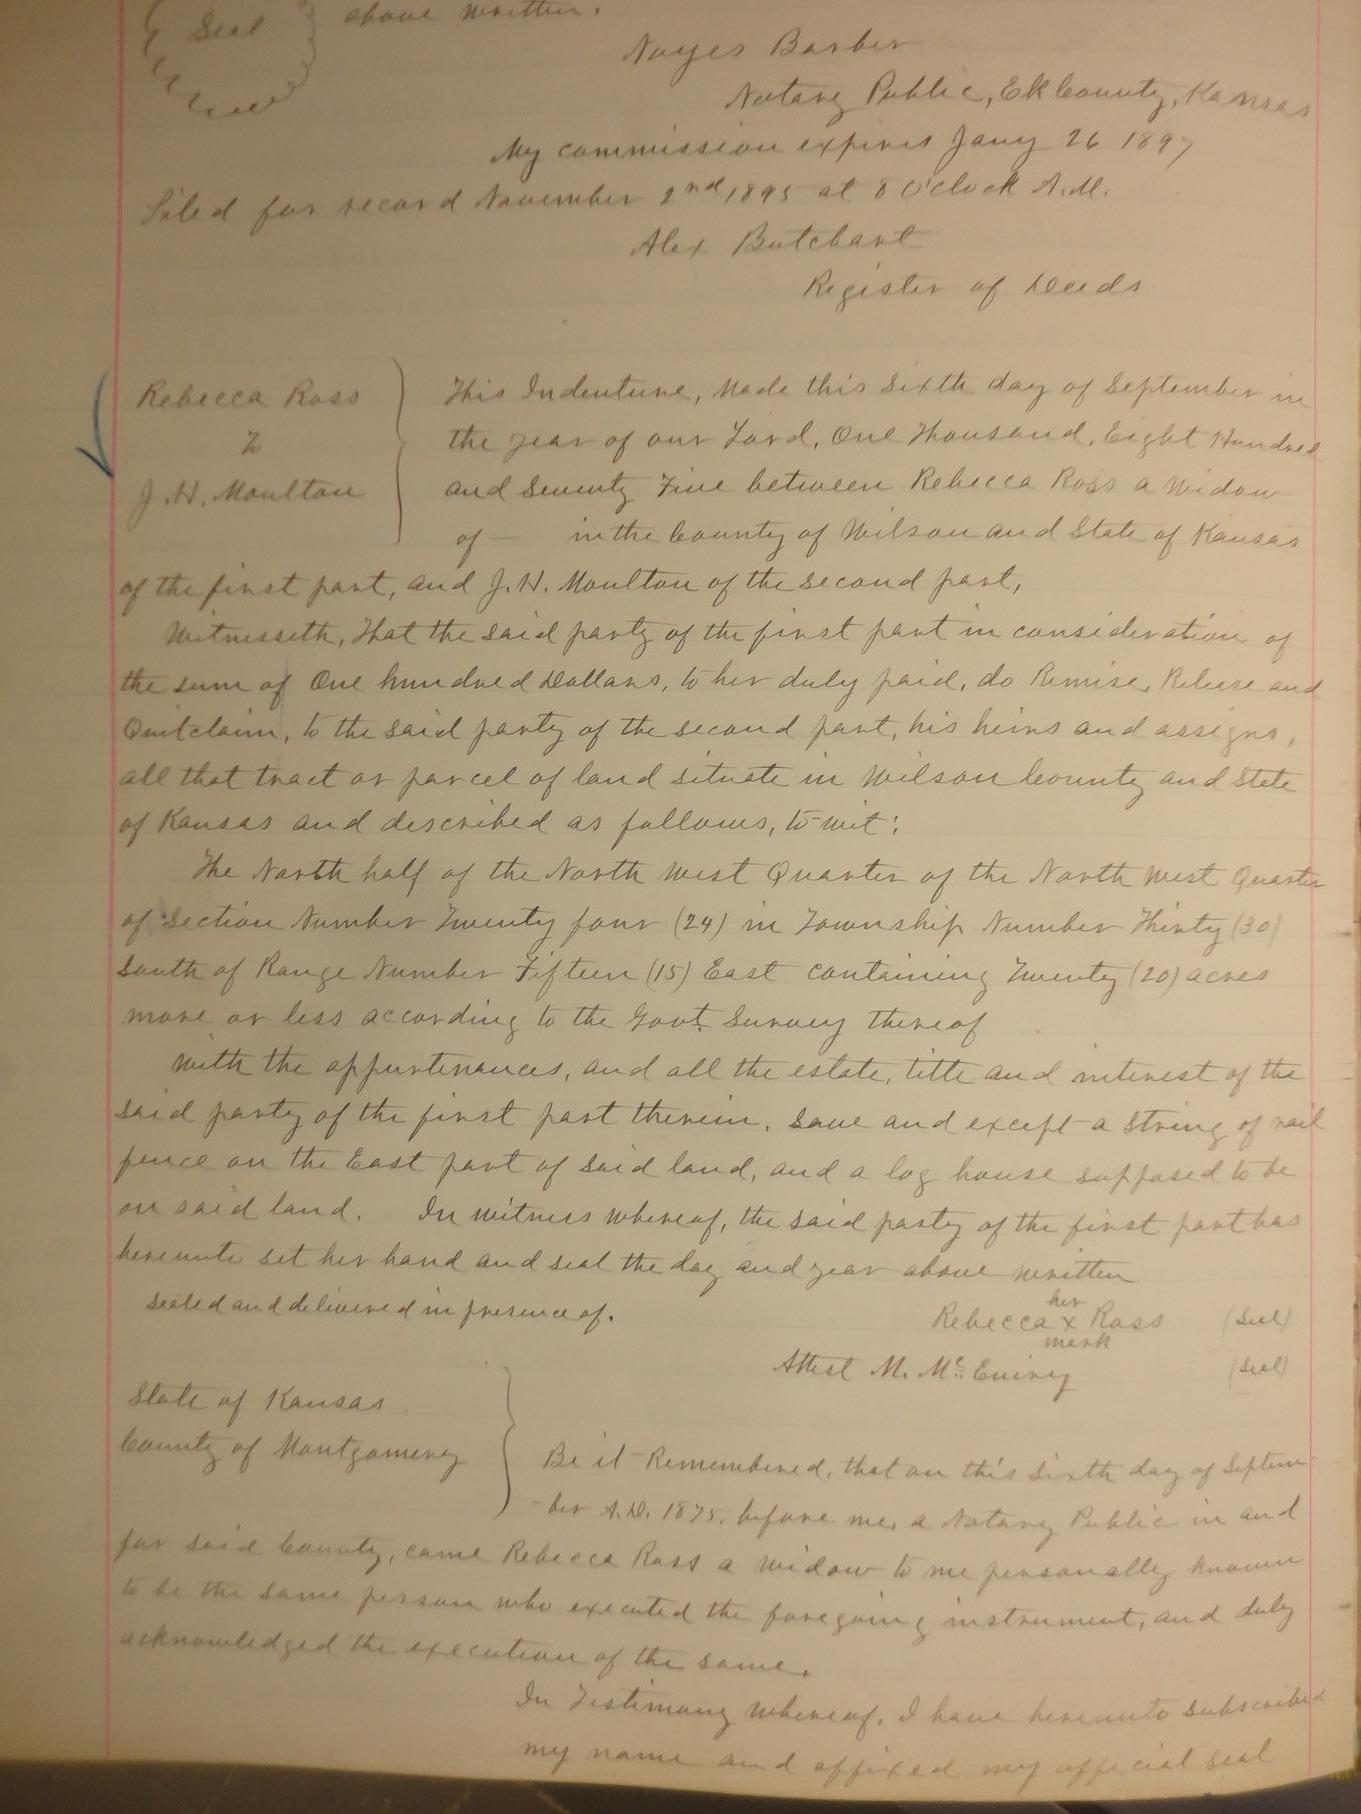 Seal above written.
Noyes Barber
Notary Public, Elk County, Kansas
My commission expires Jany 26 1897
Filed for record November 2nd 1895 at 8 O'clock A.M.
Alex Butchart
Register of Deeds
Rebecca Ross
To
J. H. Moulton
This Indenture, Made this Sixth day of September in
the year of our Lord, One Thousand, Eight Hundred
and Seventy Five between Rebecca Ross a Widow
of — in the County of Wilson and State of Kansas
of the first part, and J. H. Moulton of the second part,
Witnesseth, That the said party of the first part in consideration of
the sum of One hundred Dollars, to her duly paid, do Remise, Release and
Quitclaim, to the said party of the second part, his heirs and assigns,
all that tract or parcel of land situate in Wilson County and State
of Kansas and described as follows, to-wit:
The North half of the North West Quarter of the North West Quarter
of Section Number Twenty four (24) in Township Number Thirty (30)
South of Range Number Fifteen (15) East containing Twenty (20) acres
more or less according to the Govt. Survey thereof
with the appurtenances, and all the estate, title and interest of the
said party of the first part therein, save and except a string of rail
fence on the East part of said land, and a log house supposed to be
on said land. In witness whereof, the said party of the first part has
hereunto set her hand and seal the day and year above written
Sealed and delivered in presence of.
her
Rebecca x Ross (Seal)
mark
Attest M. (Seal)
State of Kansas
County of Montgomery
Be it Remembered, that on this Sixth day of Septem
-ber A.D. 1875, before me, a Notary Public in and
for said County, came Rebecca Ross a Widow to me personally known
to be the same person who executed the foregoing instrument, and duly
acknowledged the execution of the same.
In Testimony Whereof, I have hereunto subscribed
my name and affixed my official seal